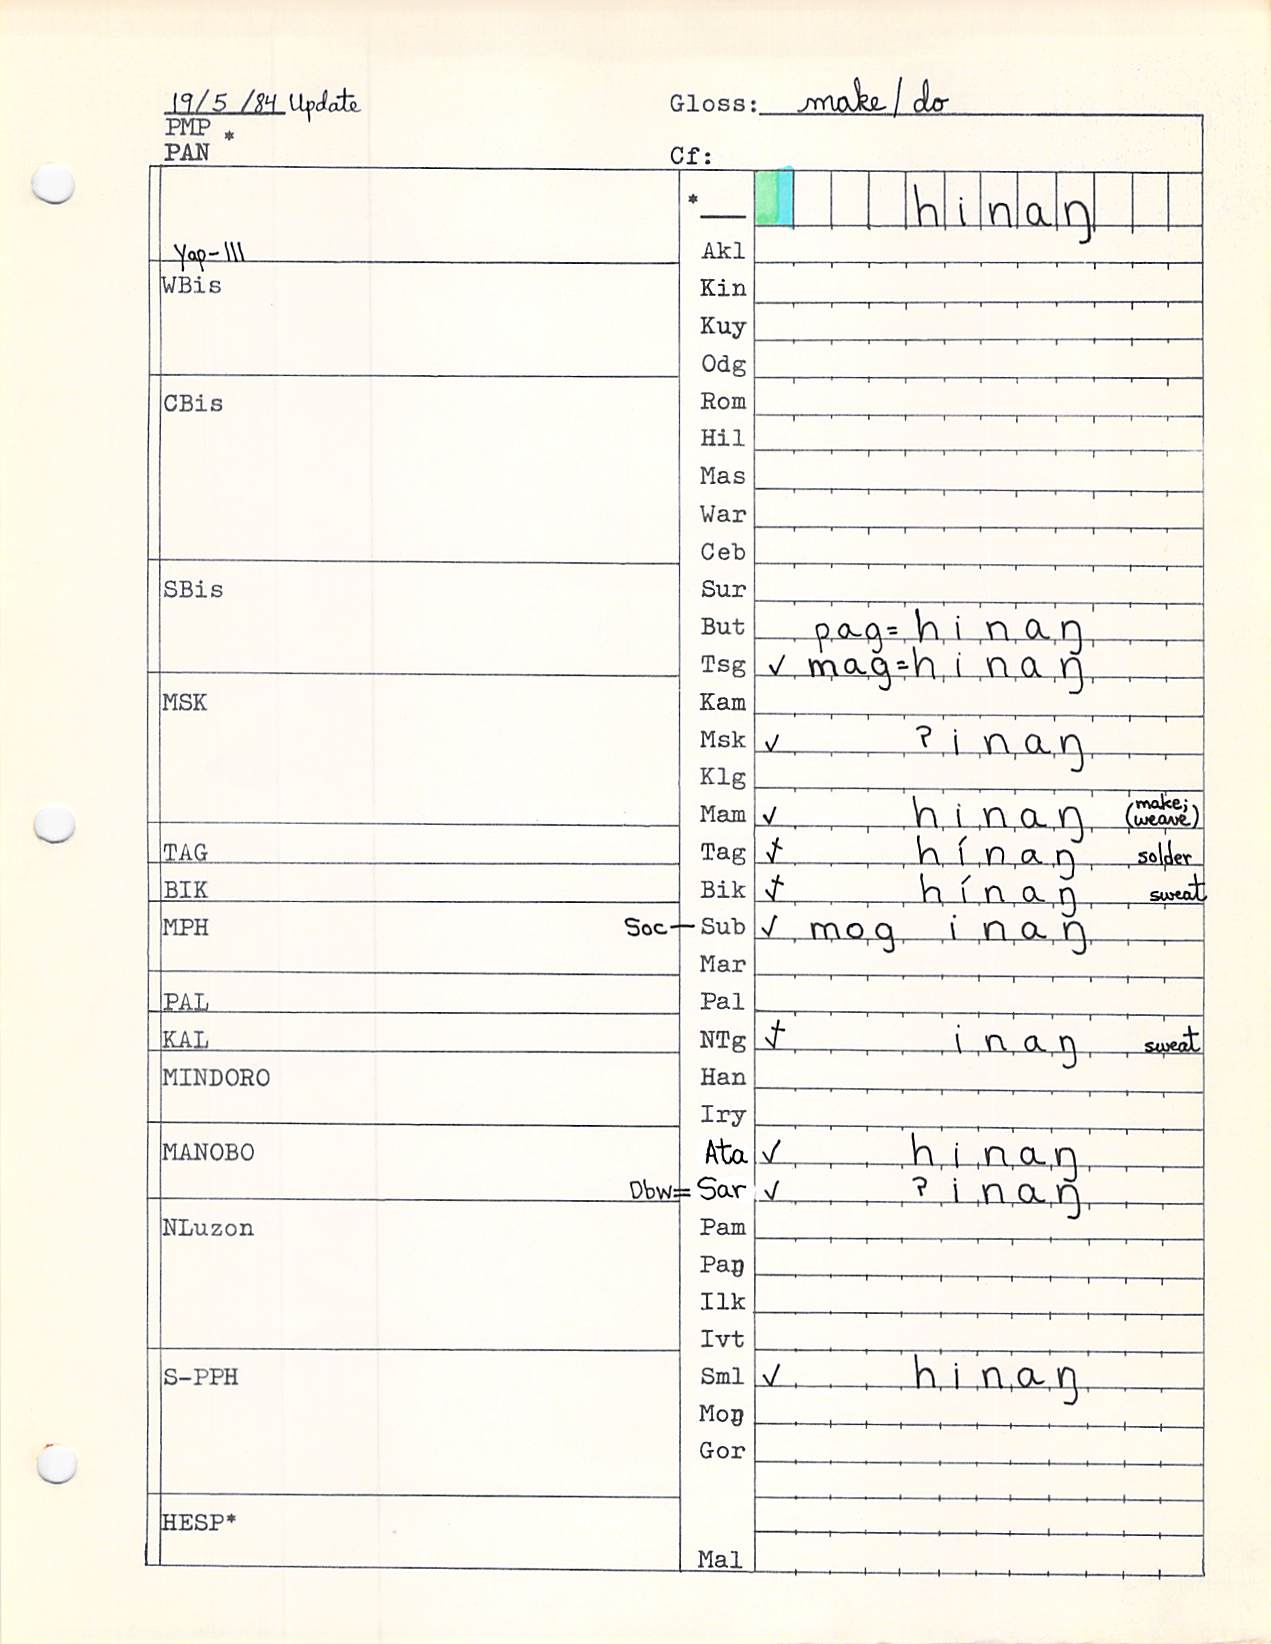 19/5/84 Update
Gloss: make/do
PMP *
PAN
Cf:
* ___ hinaŋ
Yap-111
Akl
WBis
Kin
Kuy
Odg
CBis
Rom
Hil
Mas
War
Ceb
SBis
Sur
But pag=hinaŋ
Tsg ✓ mag=hinaŋ
MSK
Kam
Msk ✓ ʔinaŋ
Klg
Mam ✓ hinaŋ (make; weave)
TAG
Tag hínaŋ solder
BIK
Bik hínaŋ sweat
MPH
Soc — Sub ✓ mog inaŋ
Mar
PAL
Pal
KAL
NTg inaŋ sweat
MINDORO
Han
Iry
MANOBO
Ata ✓ hinaŋ
Dbw= Sar ✓ ʔinaŋ
NLuzon
Pam
Paŋ
Ilk
Ivt
S-PPH
Sml ✓ hinaŋ
Moŋ
Gor
HESP*
Mal